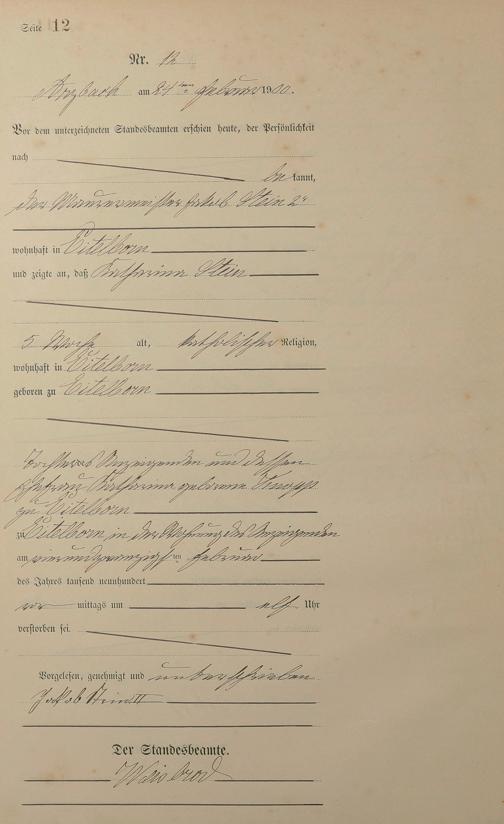 Seite 12
Nr. 12
Arzbach am 24ten Februar 1900.
Vor dem unterzeichneten Standesbeamten erschien heute, der Persönlichkeit
nach
bekannt,
der Maurermeister Jakob Stein 2r
wohnhaft in Eitelborn
und zeigte an, daß Katharina Stein
5 Woche alt, katholischer Religion,
wohnhaft in Eitelborn
geboren zu Eitelborn
Tochter des Anzeigenden und dessen
Ehefrau Katharina geborene Knopp
zu Eitelborn
zu Eitelborn in der Wohnung des Anzeigenden
am vierundzwanzigsten Februar
des Jahres tausend neunhundert
vor mittags um elf Uhr
verstorben sei.
Vorgelesen, genehmigt und unterschrieben
Jakob Stein II
Der Standesbeamte.
Weisbrod